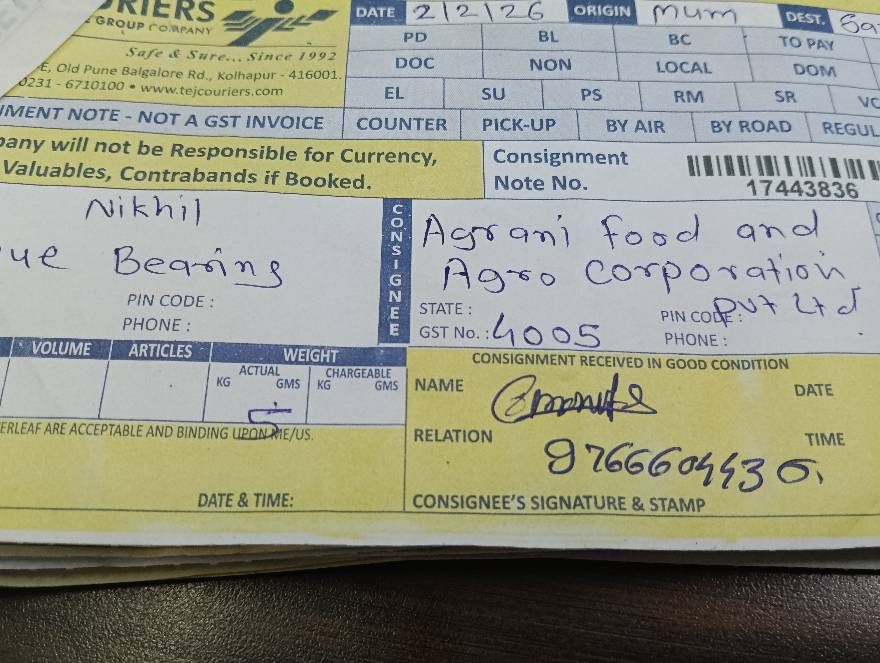 RIERS
GROUP COMPANY
Safe & Sure... Since 1992
E, Old Pune Balgalore Rd., Kolhapur - 416001.
0231 - 6710100 • www.tejcouriers.com
DATE 2/2/26 ORIGIN Mum DEST.
PD BL BC TO PAY
DOC NON LOCAL DOM
EL SU PS RM SR VC
MENT NOTE - NOT A GST INVOICE COUNTER PICK-UP BY AIR BY ROAD REGUL
pany will not be Responsible for Currency,
Valuables, Contrabands if Booked.
Consignment
Note No.
17443836
Nikhil
ue Bearing
PIN CODE :
PHONE :
CONSIGNEE
Agrani food and
Agro Corporation
Pvt Ltd
STATE : PIN CODE :
GST No. : 4005 PHONE :
VOLUME ARTICLES WEIGHT
ACTUAL CHARGEABLE
KG GMS KG GMS
5
ERLEAF ARE ACCEPTABLE AND BINDING UPON ME/US.
DATE & TIME:
CONSIGNMENT RECEIVED IN GOOD CONDITION
NAME DATE
RELATION TIME
CONSIGNEE'S SIGNATURE & STAMP